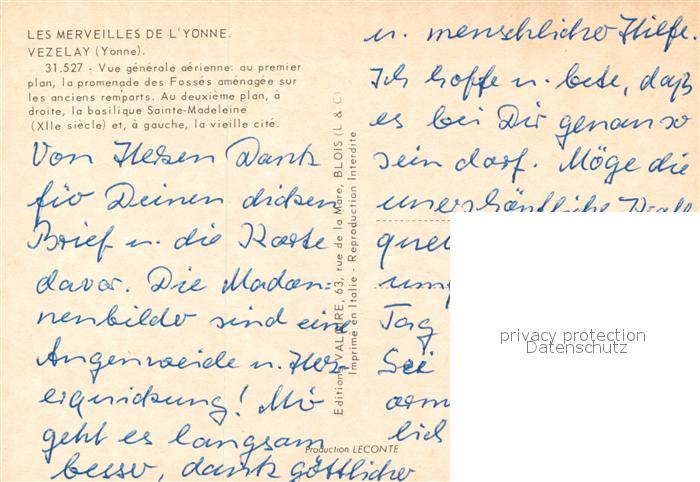 LES MERVEILLES DE L'YONNE.
VEZELAY (Yonne).
31.527 - Vue générale aérienne: au premier
plan, la promenade des Fossés aménagée sur
les anciens remparts. Au deuxième plan, à
droite, la basilique Sainte-Madeleine
(XIIe siècle) et, à gauche, la vieille cité.
Von Herzen Dank
für Deinen dicken
Brief u. die Karte
davor. Die Madon=
nenbilder sind eine
Augenweide u. Herz-
erquickung! Mir
geht es langsam
besser, dank göttlicher
Editions VALOIRE, 63, rue de la Mare, BLOIS (L & C)
Imprimé en Italie - Reproduction Interdite
Production LECONTE
u. menschlicher Hilfe.
Ich hoffe u. bete, daß
es bei Dir genau so
sein darf. Möge die
unerschöpfliche Kraft
quel
um
Tag
Sei
arm
lich
privacy protection
Datenschutz